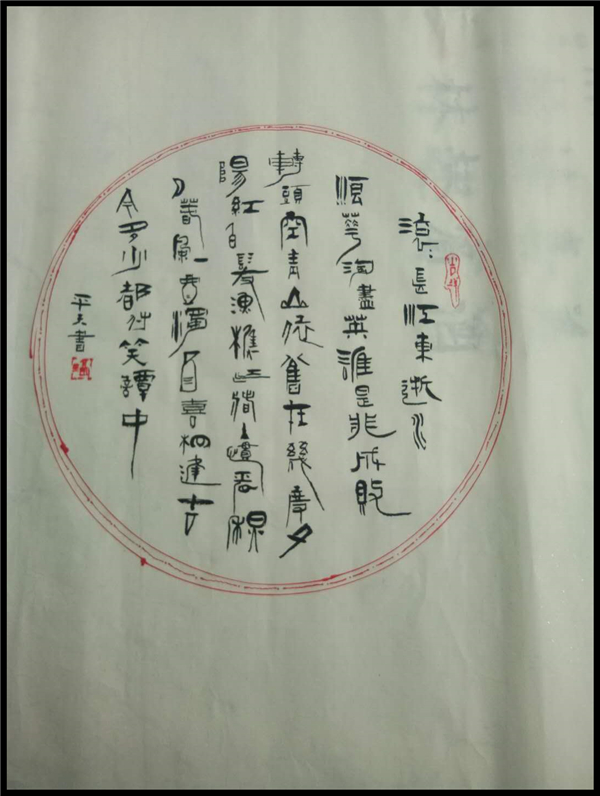 滾滾長江東逝水
浪花淘盡英雄是非成敗
轉頭空青山依舊在幾度夕
陽紅白髮漁樵江渚上慣看秋
月春風一壺濁酒喜相逢古
今多少都付笑譚中
書
吉祥